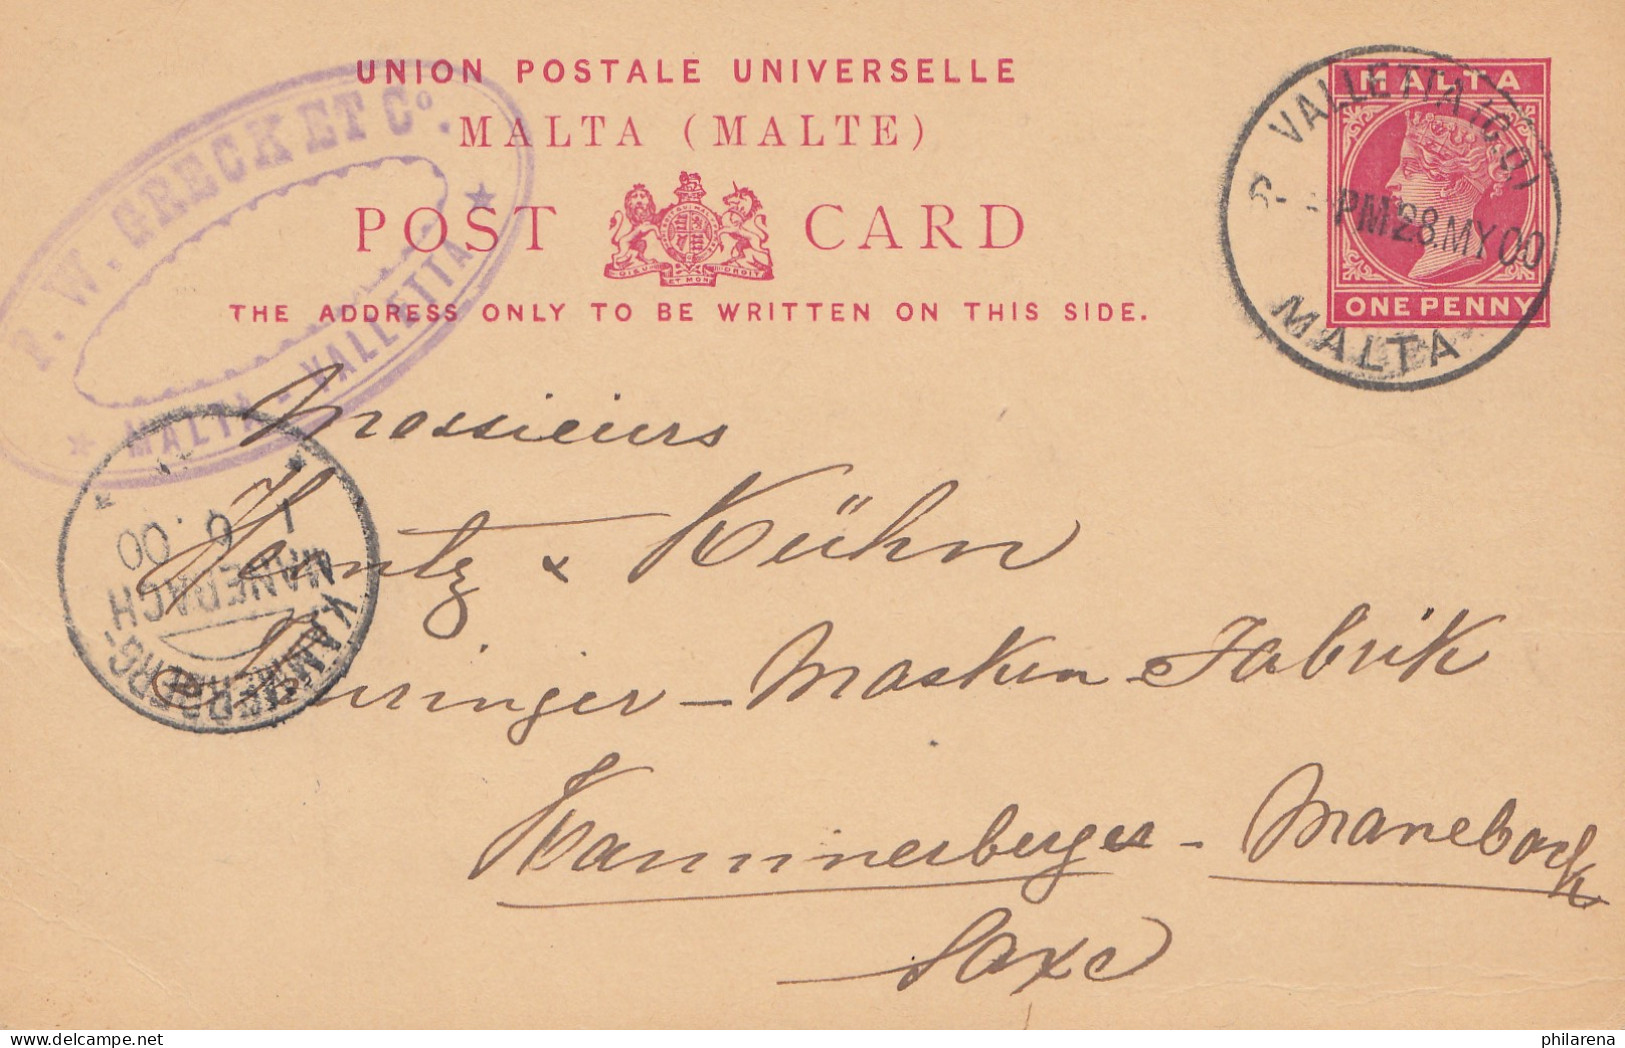 UNION POSTALE UNIVERSELLE
MALTA (MALTE)
POST CARD
DIEU ET MON DROIT
THE ADDRESS ONLY TO BE WRITTEN ON THIS SIDE.
MALTA
ONE PENNY
VALLETTA
PM 28.MY 00
MALTA
P. W. GRECK ET Co.
★ MALTA - VALLETTA ★
Messieurs
Heintz & Kühn
Masken-Fabrik
Kammerberger - Manebach
Saxe
KAMMERBERG-
MANEBACH
1 6 00
philarena